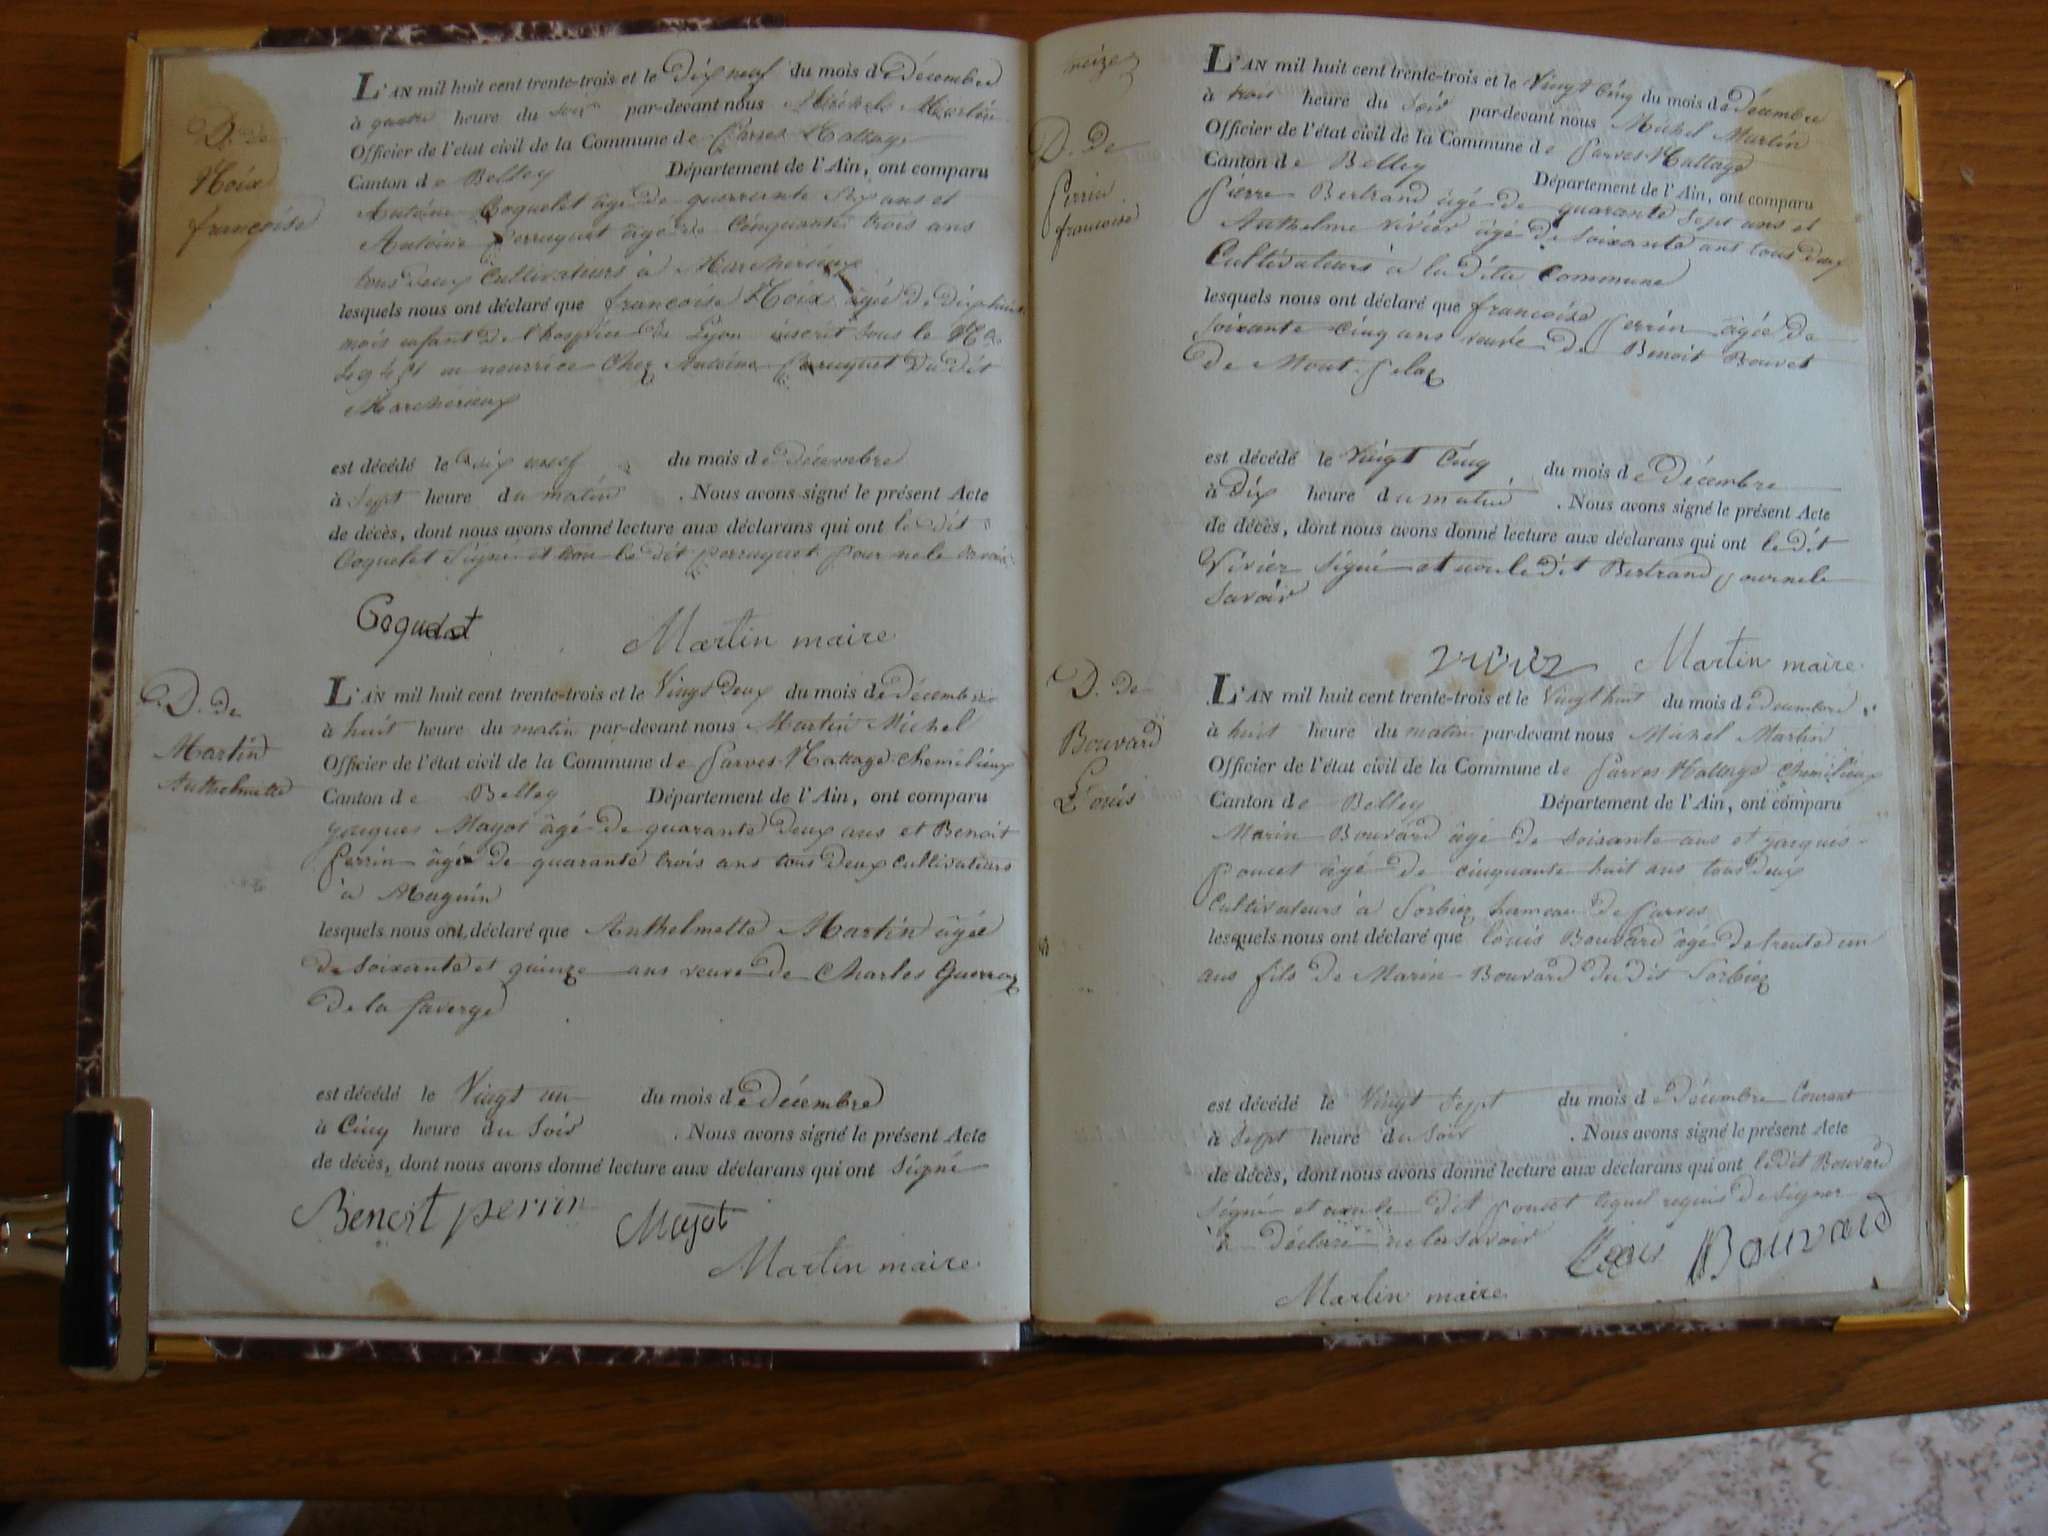 D. de
Noix
françoise
L'AN mil huit cent trente-trois et le Dix neuf du mois de Décembre
à quatre heure du soir par-devant nous Michel Martin
Officier de l'état civil de la Commune de Parves Nattage
Canton de Belley Département de l'Ain, ont comparu
Antoine Coquelet âgé de quarrante six ans et
Antoine Perruquet âgé de Cinquante trois ans
tous deux Cultivateurs à
lesquels nous ont déclaré que françoise Noix âgée de dix huit
mois enfant de l'hospice de Lyon inscrit sous le
en nourrice Chez Antoine Perruquet du dit
est décédé le dix neuf du mois de Décembre
à Sept heure du matin . Nous avons signé le présent Acte
de décès, dont nous avons donné lecture aux déclarans qui ont le dit
Coquelet Signé et non le dit perruquet pour ne le savoir
Coquelet Martin maire
D. de
Martin
Anthelmette
L'AN mil huit cent trente-trois et le Vingt Deux du mois de Décembre
à huit heure du matin par-devant nous Martin Michel
Officier de l'état civil de la Commune de Parves Nattage chemilieux
Canton de Belley Département de l'Ain, ont comparu
jacques Mayot âgé de quarante deux ans et Benoit
Perrin âgé de quarante trois ans tous deux cultivateurs
à Magnin
lesquels nous ont déclaré que Anthelmette Martin âgée
de soixante et quinze ans veuve de Charles
de la faverge
est décédé le Vingt un du mois de décembre
à Cinq heure du Soir . Nous avons signé le présent Acte
de décès, dont nous avons donné lecture aux déclarans qui ont Signé
Benoit perrin Mayot
Martin maire
D. de
Perrin
francoise
L'AN mil huit cent trente-trois et le Vingt Cinq du mois de décembre
à trois heure du Soir par-devant nous Michel Martin
Officier de l'état civil de la Commune de Parves Nattage
Canton de Belley Département de l'Ain, ont comparu
Pierre Bertrand âgé de quarante Sept ans et
Anthelme Vivier âgé de Soixante ans tous deux
Cultivateurs à la dite Commune
lesquels nous ont déclaré que francoise Perrin âgée de
soixante cinq ans veuve de Benoit Bouvet
de Mont
est décédé le Vingt Cinq du mois de Décembre
à Dix heure du matin . Nous avons signé le présent Acte
de décès, dont nous avons donné lecture aux déclarans qui ont le dit
Vivier Signé et non le dit Bertrand pour ne le
Savoir
Martin maire
D. de
Bouvard
Louis
L'AN mil huit cent trente-trois et le Vingt huit du mois de décembre
à huit heure du matin par-devant nous Michel Martin
Officier de l'état civil de la Commune de Parves Nattage Chemilieux
Canton de Belley Département de l'Ain, ont comparu
Marin Bouvard âgé de soixante ans et jacques
Poncet âgé de cinquante huit ans tous deux
Cultivateurs à Sorbiez hameau de Parves
lesquels nous ont déclaré que louis Bouvard âgé de trente un
ans fils de Marin Bouvard du dit Sorbiez
est décédé le Vingt Sept du mois de Décembre Courant
à Sept heure du Soir . Nous avons signé le présent Acte
de décès, dont nous avons donné lecture aux déclarans qui ont le dit Bouvard
Signé et non le dit Poncet lequel requis de signer
à déclaré ne le savoir
Bouvard
Martin maire